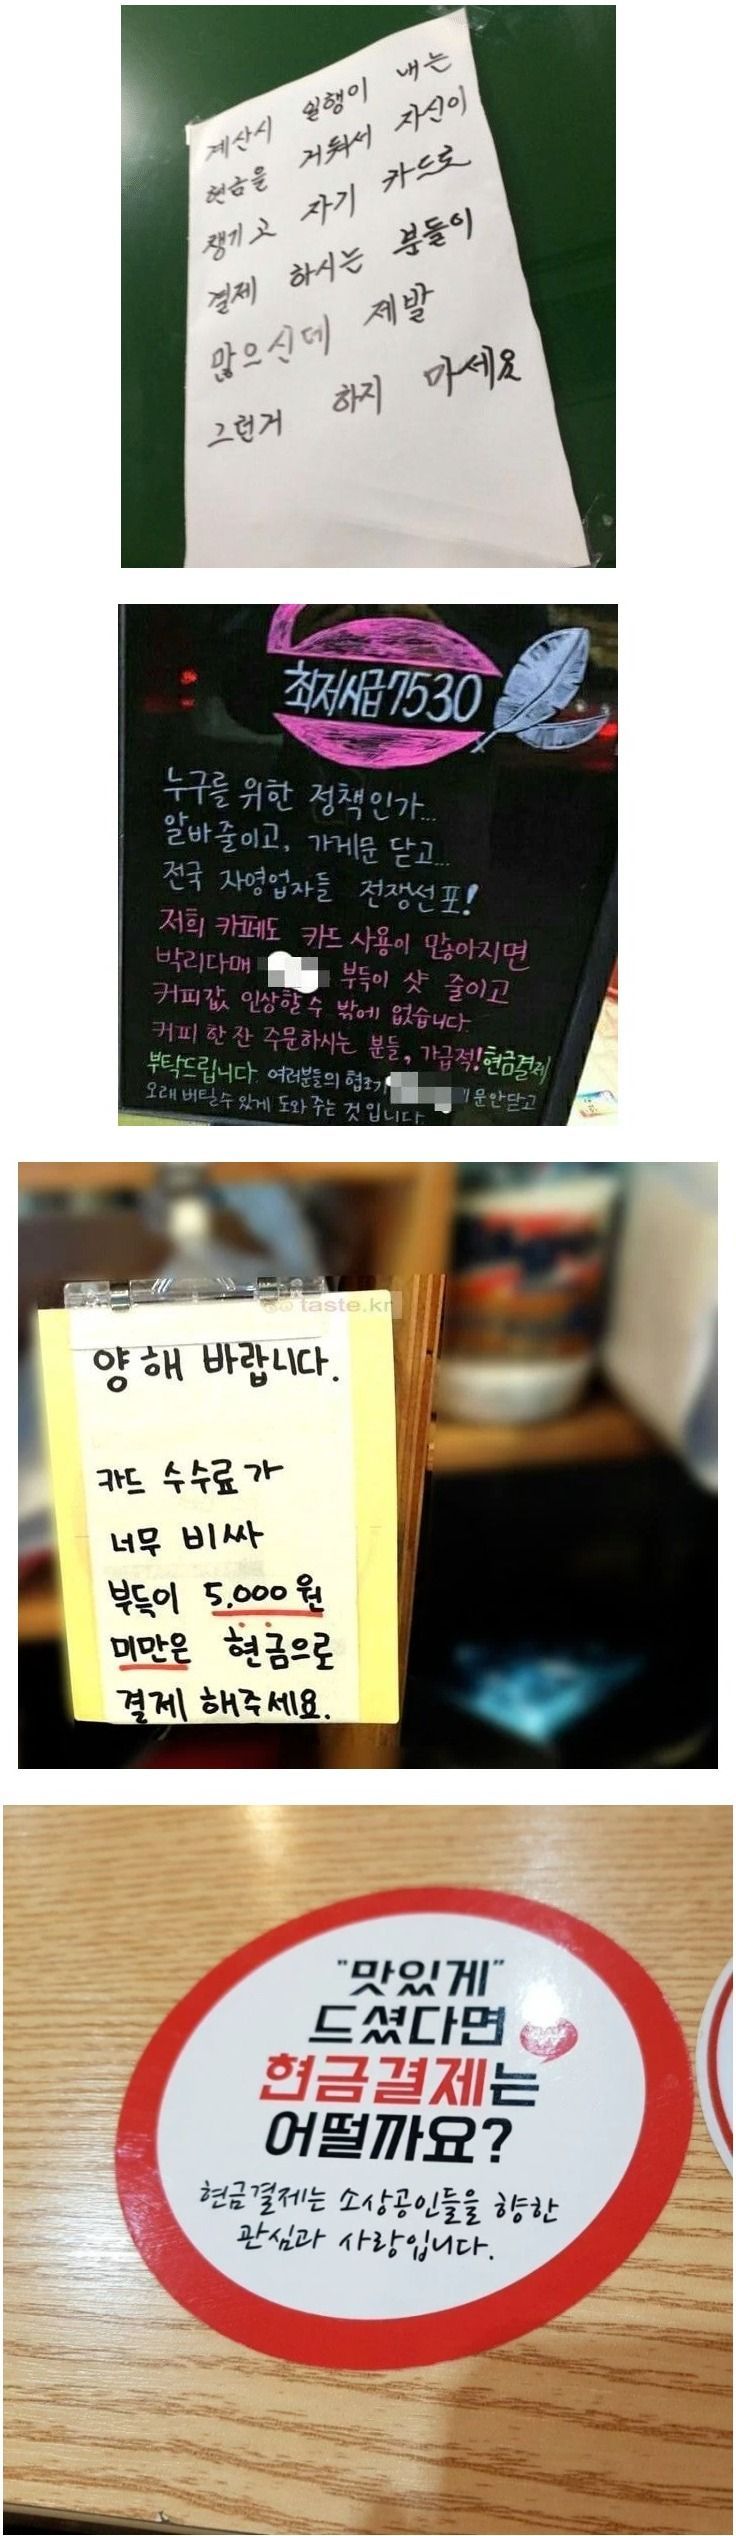 계산시 일행이 내는
현금을 거둬서 자신이
챙기고 자기 카드로
결제 하시는 분들이
많으신데 제발
그런거 하지 마세요
최저시급7530
누구를 위한 정책인가...
알바줄이고, 가게문 닫고...
전국 자영업자들 전쟁선포!
저희 카페도 카드 사용이 많아지면
박리다매 부득이 샷 줄이고
커피값 인상할 수 밖에 없습니다.
커피 한 잔 주문하시는 분들, 가급적! 현금결제
부탁드립니다. 여러분들의 협조가 문안닫고
오래 버틸수 있게 도와 주는 것 입니다.
taste.kr
양해 바랍니다.
카드 수수료가
너무 비싸
부득이 5,000원
미만은 현금으로
결제 해주세요.
"맛있게"
드셨다면
현금결제는
어떨까요?
현금결제는 소상공인들을 향한
관심과 사랑입니다.